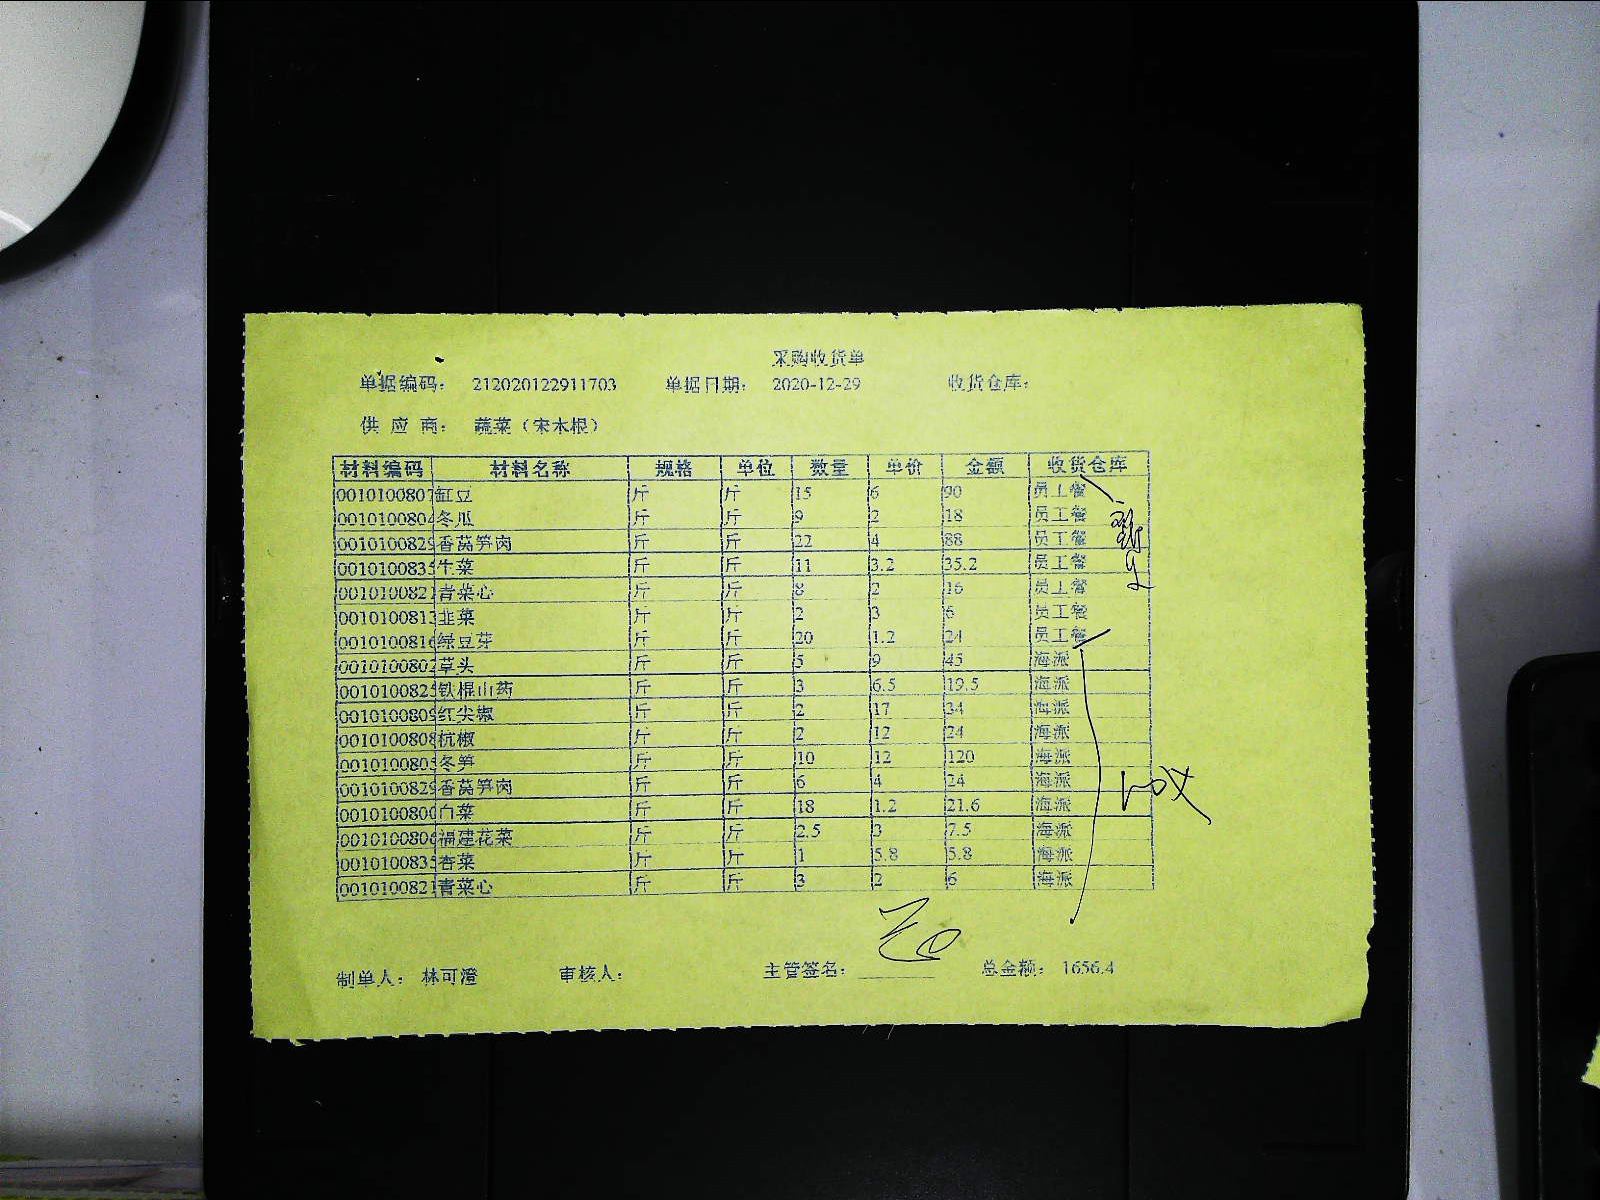 采购收货单
单据编码： 212020122911703 单据日期： 2020-12-29 收货仓库：
供 应 商： 蔬菜（宋木根）
材料编码 材料名称 规格 单位 数量 单价 金额 收货仓库
0010100807 缸豆 斤 斤 15 6 90 员工餐
001010080 冬瓜 斤 斤 9 2 18 员工餐
001010082 香莴笋肉 斤 斤 22 4 88 员工餐
001010083 生菜 斤 斤 11 3.2 35.2 员工餐
001010082 青菜心 斤 斤 8 2 16 员工餐
001010081 韭菜 斤 斤 2 3 6 员工餐
001010081 绿豆芽 斤 斤 20 1.2 24 员工餐
001010080 草头 斤 斤 5 9 45 海派
001010082 铁棍山药 斤 斤 3 6.5 19.5 海派
001010080 红尖椒 斤 斤 2 17 34 海派
001010080 杭椒 斤 斤 2 12 24 海派
001010080 冬笋 斤 斤 10 12 120 海派
001010082 香莴笋肉 斤 斤 6 4 24 海派
001010080 白菜 斤 斤 18 1.2 21.6 海派
001010080 福建花菜 斤 斤 2.5 3 7.5 海派
001010083 香菜 斤 斤 1 5.8 5.8 海派
001010082 青菜心 斤 斤 3 2 6 海派
制单人： 林可澄 审核人： 主管签名： 总金额： 1656.4